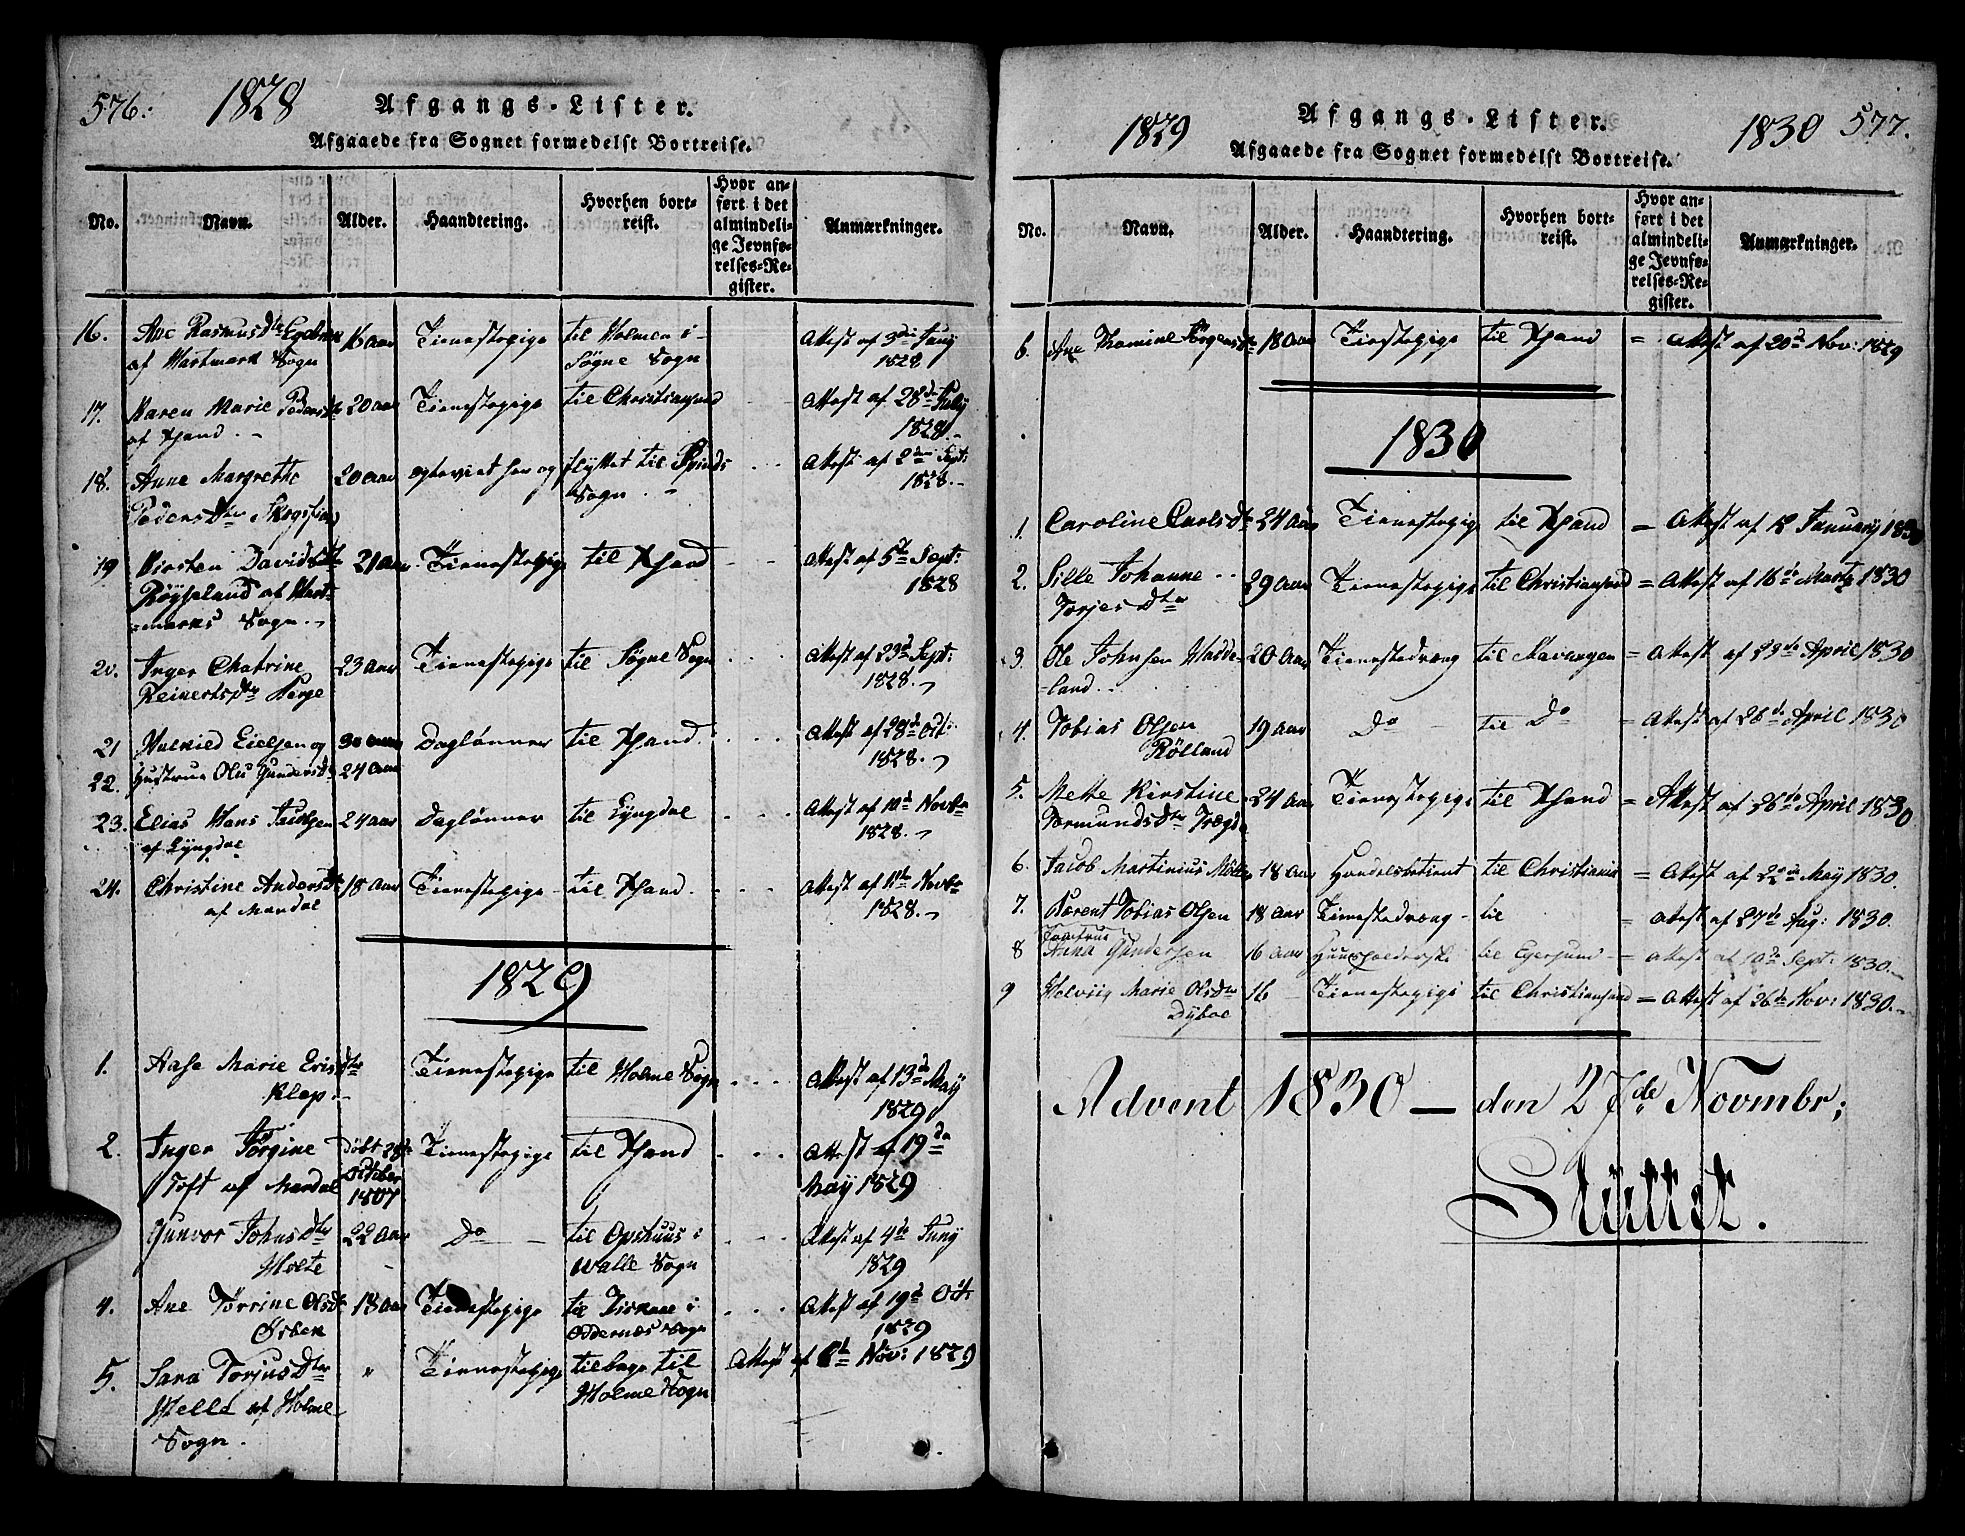 576: 1828 Afgangs-Lister.
Afgaaede fra Sognet formedelst Bortreise.
No. Navn. Alder. Haandtering. Hvorhen bortreist. Hvor anført i det almindelige Jevnførelses-Register. Anmærkninger.
16. Ane Rasmusdtr 16 Aar Tienestepige til Holmen i Attest af 3die Juny
af Hartmark Sogn Søgne Sogn 1828
17. Karen Marie Pedersdtr 20 Aar Tienestepige til Christiansand Attest af 28de July
af Xsand. 1828.
18. Anne Margrethe 20 Aar ogteviet her og flyttet til Spinds Attest af 2den Sept:
Pedersdtr Sogn. 1828.
19 Kirsten Davidsdtr 21 Aar Tienestepige til Xsand Attest af 5te Sept:
Røyseland af Hart- 1828
=marks Sogn.
20. Inger Chatrine 23 Aar Tienestepige til Søgne Sogn Attest af 23d Sept:
Reinertsdtr Berge 1828.
21 Eielsen og 30 Aar Daglønner til Xsand. Attest af 28de Oct:
22. Hustrue Gundersdtr 24 Aar 1828.
23. Elias Hans 24 Aar Daglønner til Lyngdal Attest af 10d Novbr
af Lyngdal 1828.
24. Christine Andersdtr 18 Aar Tienestepige til Xsand. Attest af 11te Novbr
af Mandal 1828.
1829
1. Aase Marie Tienestepige til Holme Sogn Attest af 13de May
Klep 1829
2. Inger Jørgine Døbt 28de Tienestepige til Xsand Attest af 19de
Toft af Mandal October May 1829
1807
Gunvor Johnsdtr 22 Aar Do til Opshuus i Attest af 4de Juny
Holte Walle Sogn 1829
4. Ane Tørrine Olsdtr 18 Aar Tienestepige til i Attest af 19d Oct
Oddernæs Sogn 1829
5. Sara Torjusdtr " Tienestepige tilbage til Attest af Nov: 1829
af Holme Holme Sogn
Sogn.
1829 Afgangs-Lister. 1830 577.
Afgaaede fra Sognet formedelst Bortreise.
No. Navn. Alder. Haandtering. Hvorhen bortreist. Hvor anført i det almindelige Jevnførelses-Register. Anmærkninger.
6. Ane Jørgensdtr 18 Aar Tienstepige til Xsand = Attest af 20d Nov: 1829
1830
1. Caroline Carlsdtr 24 Aar Tienestepige til Xsand = Attest af 12 January 1830
2. Sille Johanne 29 Aar Tienestepige til Christiansand = Attest af 16de Marts 1830
Torjesdtr
3. Ole Johnsen Hadde- 20 Aar Tienestedreng til Stavanger = Attest af 29de April 1830
=land.
4. Tobias Olsen 19 Aar Do til Do = Attest af 26de April 1830
Rølland
5. Mette Kirstine 24 Aar Tienestepige til Xsand = Attest af 26de April 1830
Tormundsdtr
6. Jacob Martinius 18 Aar Handelsbetient til Christiania = Attest af 22de May 1830.
7. Berent Tobias Olsen 18 Aar Tienestedreng til = Attest af 27de Aug: 1830.
8 Anna Gundersen 16 Aar til Egersund = Attest af 10de Sept: 1830.
9 Marie Olsdtr 16 Tienestepige til Christiansand = Attest af 26de Nov: 1830.
Dyboe
Advent 1830 — den 27de Novmbr;
Sluttet.